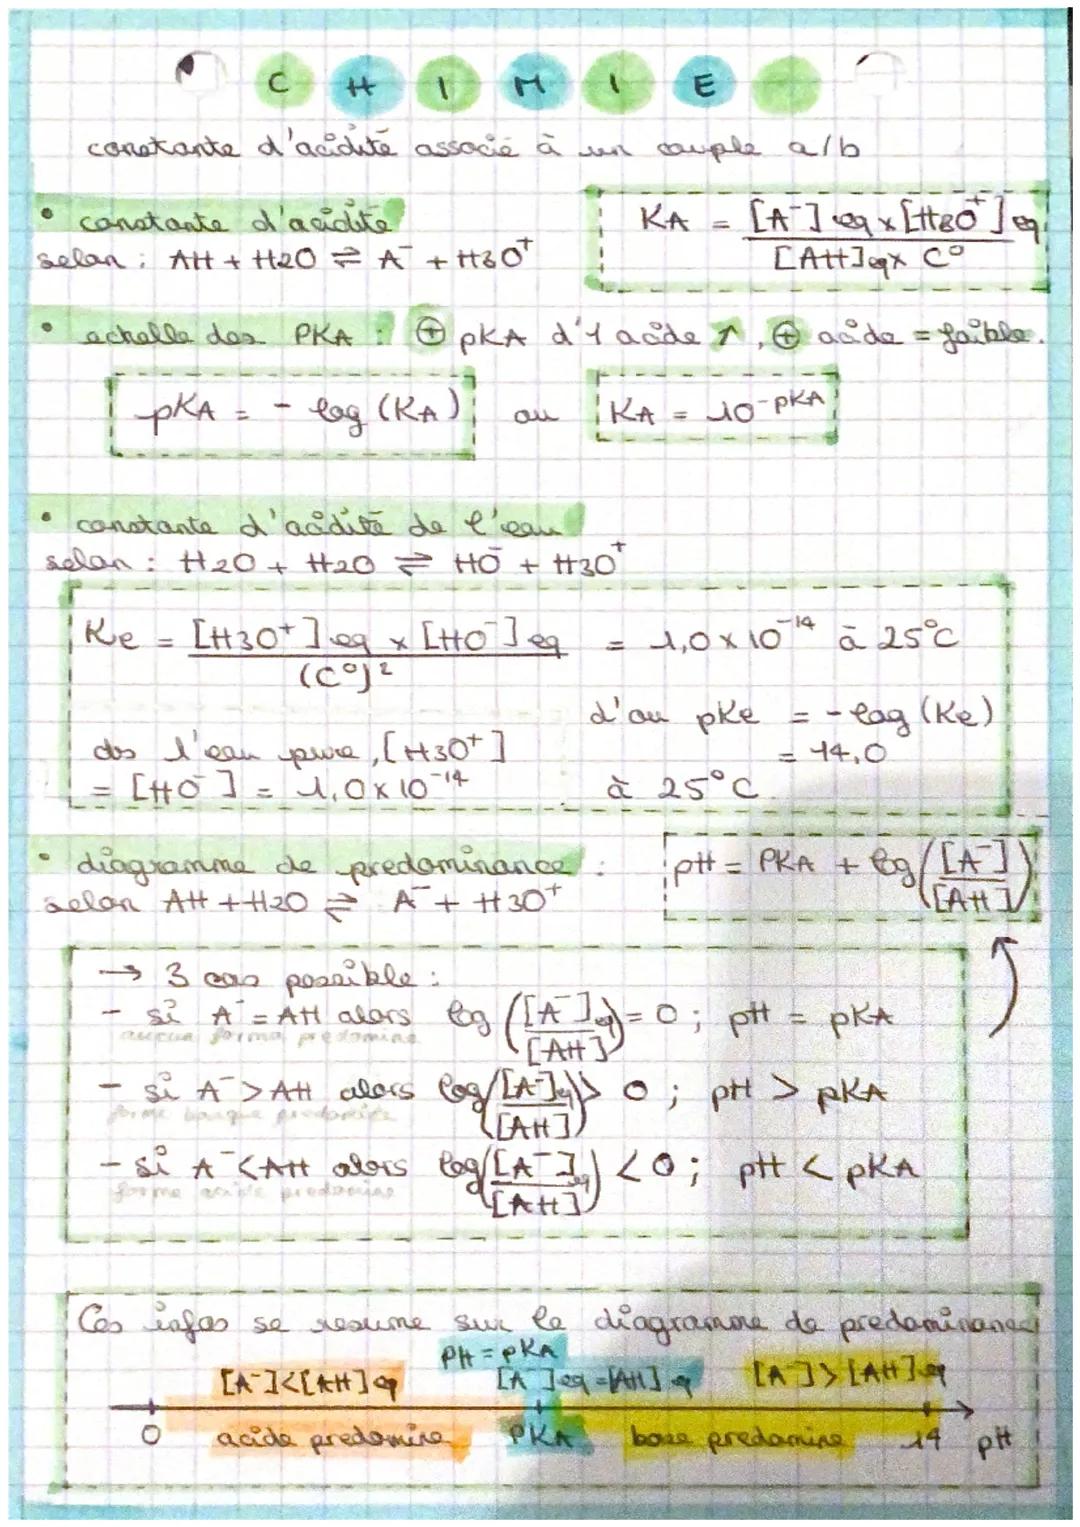 C H I M I E
constante d'acidité associé à un couple a/b
• constante d'acidité
selon : AH + H2O ⇌ A⁻ + H3O⁺
KA = [A⁻]eq x [H3O⁺]eq
[AH]eq x C°
• echelle des PKA : ⊕ pKA d'1 acide ↑, ⊕ acide = faible.
pKA = - log (KA) ou KA = 10^-PKA
• constante d'acidité de l'eau
selon : H2O + H2O ⇌ HO⁻ + H3O⁺
Ke = [H3O⁺]eq x [HO⁻]eq = 1,0 x 10⁻¹⁴ à 25°C
(C°)²
d'ou pKe = - log (Ke)
= 14,0
à 25°C
ds l'eau pure, [H3O⁺]
= [HO⁻] = 1,0 x 10⁻¹⁴
• diagramme de predominance :
selon AH + H2O ⇌ A⁻ + H3O⁺
pH = PKA + log([A⁻]/[AH])
→ 3 cas possible :
- si A⁻ = AH alors log([A⁻]eq/[AH]) = 0 ; pH = pKA
aucun forme predomine
- si A⁻ > AH alors log([A⁻]eq/[AH]) > 0 ; pH > pKA
forme basique predomine
- si A⁻ < AH alors log([A⁻]eq/[AH]) < 0 ; pH < pKA
forme acide predomine
Ces infos se resume sur le diagramme de predominance
pH = pKA
[A⁻]<[AH]eq [A⁻]eq = [AH]eq [A⁻]>[AH]eq
0 acide predomine PKA base predomine 14 pH